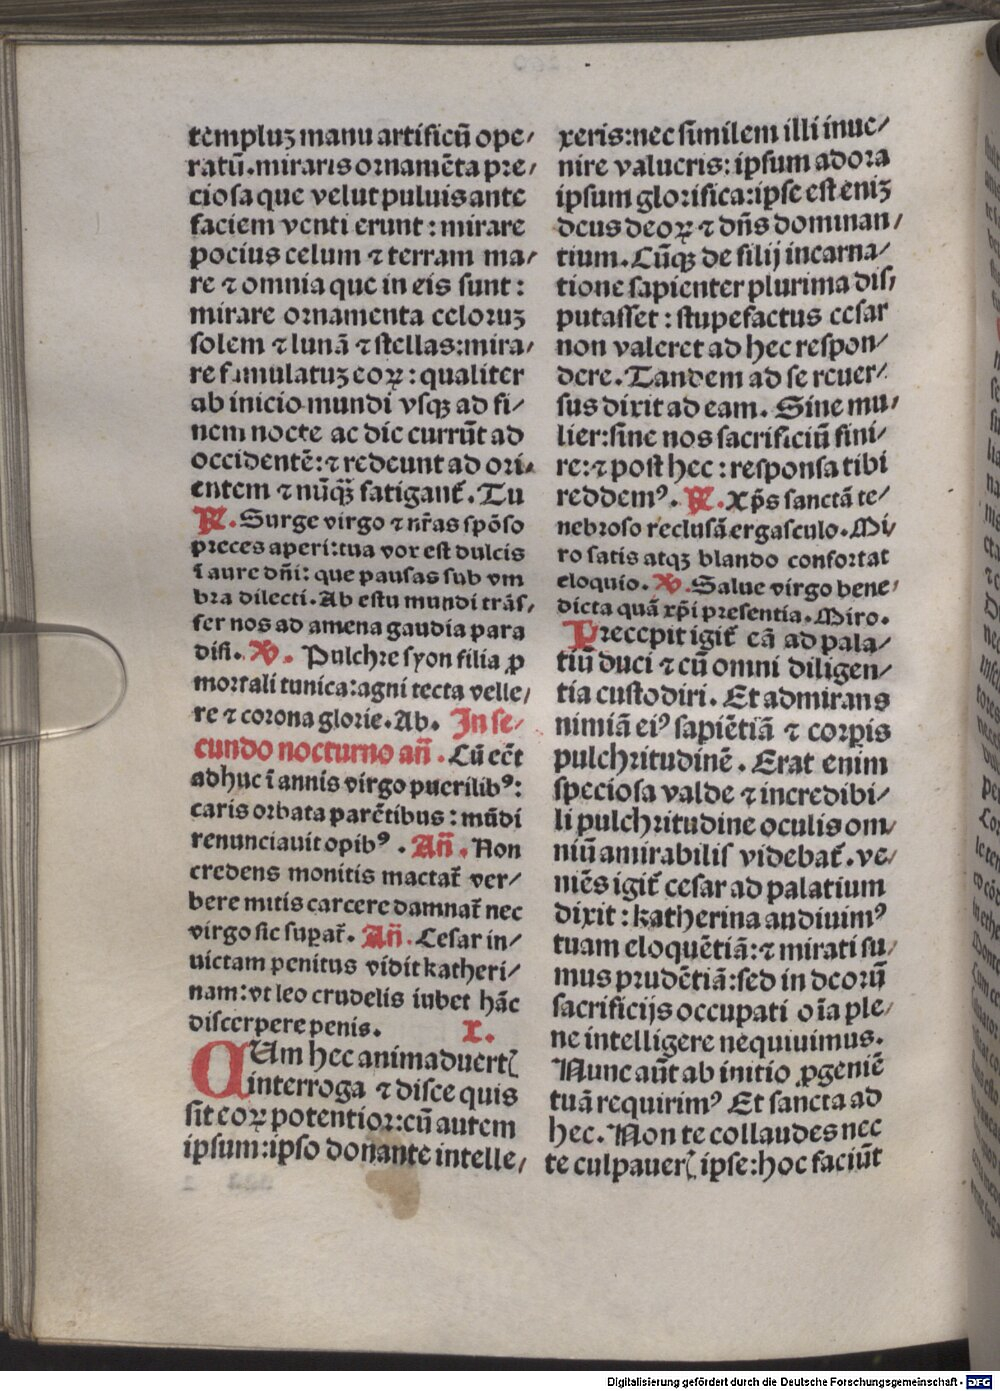 templuꝫ manu artificū ope⸗
ratū.miraris ornamēta pre⸗
ciosa que velut puluis ante
faciem venti erunt : mirare
pocius celum ⁊ terram ma⸗
re ⁊ omnia que in eis sunt :
mirare ornamenta celoruꝫ
solem ⁊ lunā ⁊ stellas:mira⸗
re famulatuꝫ eoꝝ : qualiter
ab inicio mundi vsqꝫ ad fi⸗
nem nocte ac die currūt ad
occidentē: ⁊ redeunt ad ori⸗
entem ⁊ nūqꝫ̄ fatigant̄. Tu
℟. Surge virgo ⁊ nr̄as spōso
preces aperi:tua vox est dulcis
ī aure dn̄i: que pausas sub vm
bra dilecti. Ab estu mundi trās⸗
fer nos ad amena gaudia para
disi. ℣. Pulchre syon filia ꝓ
mortali tunica:agni tecta velle⸗
re ⁊ corona glorie. Ab. In se⸗
cundo nocturno an̄. Cū eēt
adhuc ī annis virgo puerilibꝰ:
caris orbata parētibus : mūdi
renunciauit opibꝰ . An̄. Non
credens monitis mactat̄ ver⸗
bere mitis carcere damnat̄ nec
virgo sic suꝑat̄. An̄. Cesar in⸗
uictam penitus vidit katheri⸗
nam:vt leo crudelis iubet hāc
discerpere penis. X.
CUm hec animaduertꝭ
interroga ⁊ disce quis
sit eoꝝ potentior:cū autem
ipsum:ipso donante intelle⸗
xeris:nec similem illi inue⸗
nire valueris: ipsum adora
ipsum glorifica:ipse est eniꝫ
deus deoꝝ ⁊ dn̄s dominan⸗
tium. Cūqꝫ de filij incarna⸗
tione sapienter plurima dis⸗
putasset : stupefactus cesar
non valeret ad hec respon⸗
dere. Tandem ad se reuer⸗
sus dixit ad eam. Sine mu⸗
lier:sine nos sacrificiū fini⸗
re: ⁊ post hec : responsa tibi
reddemꝰ. ℟. Xp̄s sanctā te⸗
nebroso reclusā ergasculo. Mi⸗
ro satis atqꝫ blando confortat
eloquio. ℣. Salue virgo bene⸗
dicta quā xp̄i presentia. Miro.
Precepit igit̄ eā ad pala⸗
tiū duci ⁊ cū omni diligen⸗
tia custodiri. Et admirans
nimiā eiꝰ sapiētiā ⁊ corꝑis
pulchritudinē . Erat enim
speciosa valde ⁊ incredibi⸗
li pulchritudine oculis om⸗
niū amirabilis videbat̄. ve⸗
niēs igit̄ cesar ad palatium
dixit : katherina audiuimꝰ
tuam eloquētiā: ⁊ mirati su⸗
mus prudētiā:sed in deorū
sacrificijs occupati oīa ple⸗
ne intelligere nequiuimus.
Nunc aūt ab initio ꝓgeniē
tuā requirimꝰ Et sancta ad
hec. Non te collaudes nec
te culpauerꝭ ipse:hoc faciūt
Digitalisierung gefördert durch die Deutsche Forschungsgemeinschaft - DFG